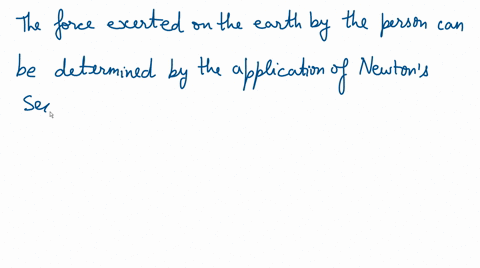 The force exerted on the earth by the person can
be determined by the application of Newton's
Sec